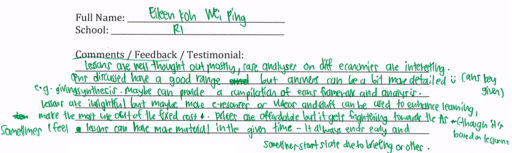 Full Name: Eileen Koh Wei Ping
School: RI
Comments / Feedback / Testimonial:
lessons are well thought out mostly, case analyses on diff economies are interesting.
Qns discussed have a good range but answers can be a bit more detailed ü (ans key given)
e.g. giving synthesis. Maybe can provide a compilation of econs framework and analysis.
lessons are insightful but maybe more e-resources or videos and stuff can be used to enhance learning,
make the most use out of the fixed cost. Prices are affordable but it gets frightening towards the
Sometimes I feel lessons can have more material in the given time - it always ends early and
sometimes starts late due to briefing or other.